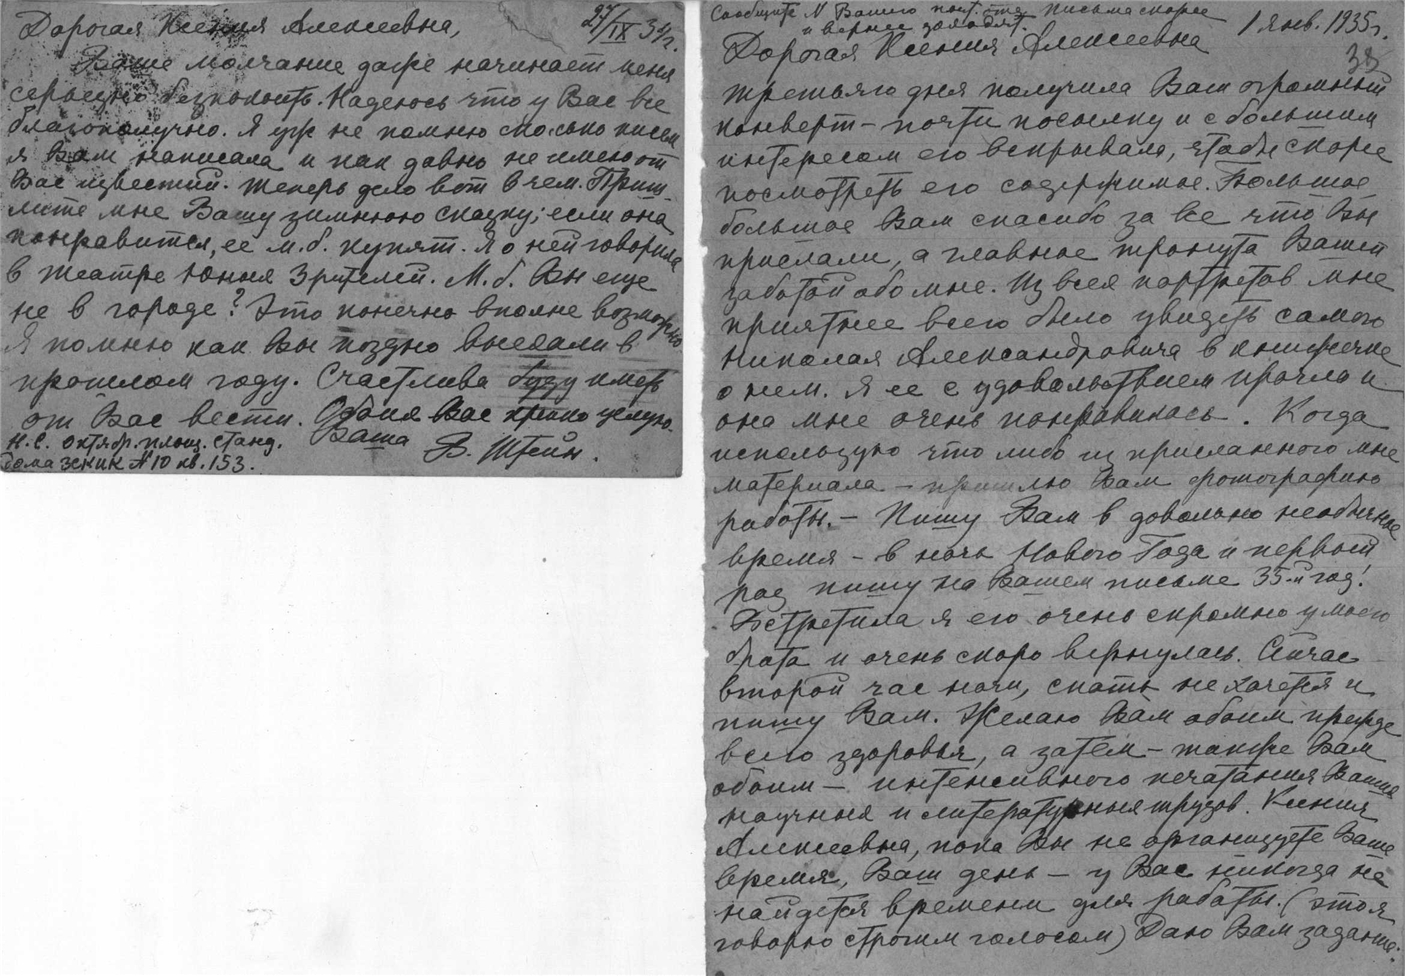 Дорогая Ксения Алексеевна,
27/IX 34 г.
Ваше молчание даже начинает меня
серьезно безпокоить. Надеюсь что у Вас все
благополучно. Я уж не помню сколько писем
я Вам написала и как давно не имею от
Вас известий. Теперь дело вот в чем. Приш-
лите мне Вашу зимнюю сказку; если она
понравится, ее м.б. купят. Я о ней говорила
в театре Юных Зрителей. М.б. Вы еще
не в городе? Это конечно вполне возможно
Я помню как Вы поздно выехали в
прошлом году. Счастлива буду иметь
от Вас вести. Обоих Вас крепко целую.
Ваша В. Штейн.
Н.С. Октябр. площ. станд.
дома ЗСКИК № 10 кв. 153.
Сообщите № Вашего почт. отд. письма скорее
и вернее заходят.
1 янв. 1935 г.
38
Дорогая Ксения Алексеевна
третьяго дня получила Ваш огромный
конверт – почти посылку и с большим
интересом его вскрывала, чтобы скорее
посмотреть его содержимое. Большое
большое Вам спасибо за все что Вы
прислали, а главное тронута Вашей
заботой обо мне. Из всех портретов мне
приятнее всего было увидеть самого
Николая Александровича в книжечке
о нем. Я ее с удовольствием прочла и
она мне очень понравилась. Когда
использую что либо из присланного мне
материала – пришлю Вам фотографию
работы. – Пишу Вам в довольно необычное
время – в ночь Нового Года и первый
раз пишу на Вашем письме 35-й год!
Встретила я его очень скромно у моего
брата и очень скоро вернулась. Сейчас
второй час ночи, спать не хочется и
пишу Вам. Желаю Вам обоим прежде
всего здоровья, а затем – также Вам
обоим – интенсивного печатания Ваших
научных и литературных трудов. Ксения
Алексеевна, пока Вы не организуете Ваше
время, Ваш день – у Вас никогда не
найдется времени для работы. (это я
говорю строгим голосом) Даю Вам задание: